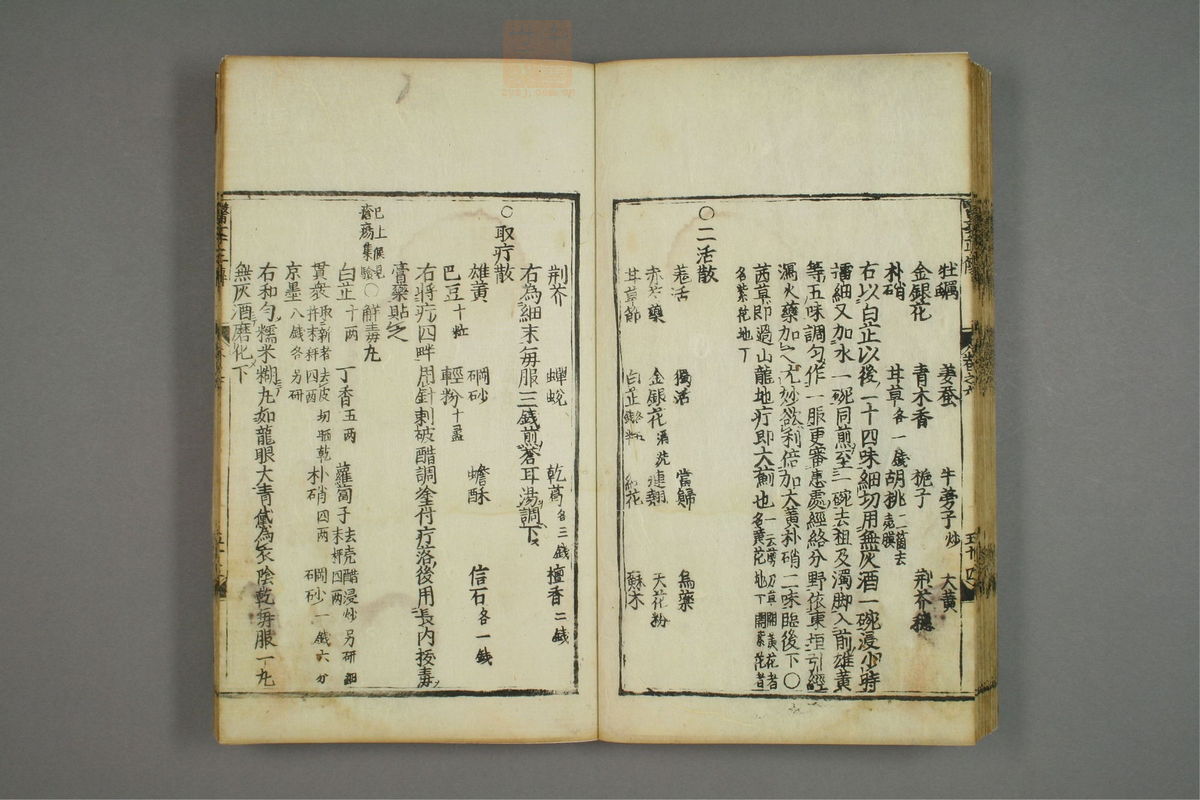 牡蠣 姜蚕 牛蒡子炒 大黄
金銀花 青木香 梔子 荆芥穗
朴硝 甘草各一錢 胡桃二箇去壳膜
右以白芷以後一十四味細切用無灰酒一碗浸少時
擂細又加水一碗同煎至一碗去粗及濁脚入前雄黄
等五味調匀作一服更審患處經絡分野依東垣引經
瀉火藥加之尤妙欲利倍加大黄朴硝二味臨後下〇
茜草即過山龍地疔即大薊也
名紫花地丁
〇二活散
羗活 獨活 當歸 烏藥
赤芍藥 金銀花酒洗 連翹 天花粉
甘草節 白芷 紅花 蘇木
荆芥 蟬蛻 乾葛各三錢 檀香二錢
右為細末毎服三錢煎蒼耳湯調下
〇取疔散
雄黄 硇砂 蟾酥 信石各一錢
巴豆十粒 輕粉十盝
右將疔四畔用針刺破醋調塗疔落後用長肉拔毒
膏藥貼之
已上俱見
瘡瘍集驗〇解毒丸
白芷十两 丁香五两 蘿蔔子去壳醋浸炒另研細末秤四两
貫衆取新者去皮切晒乾并末秤四两 朴硝四两 硇砂一錢六分
京墨八錢各另研
右和匀糯米糊丸如龍眼大青黛為衣陰乾毎服一丸
無灰酒磨化下